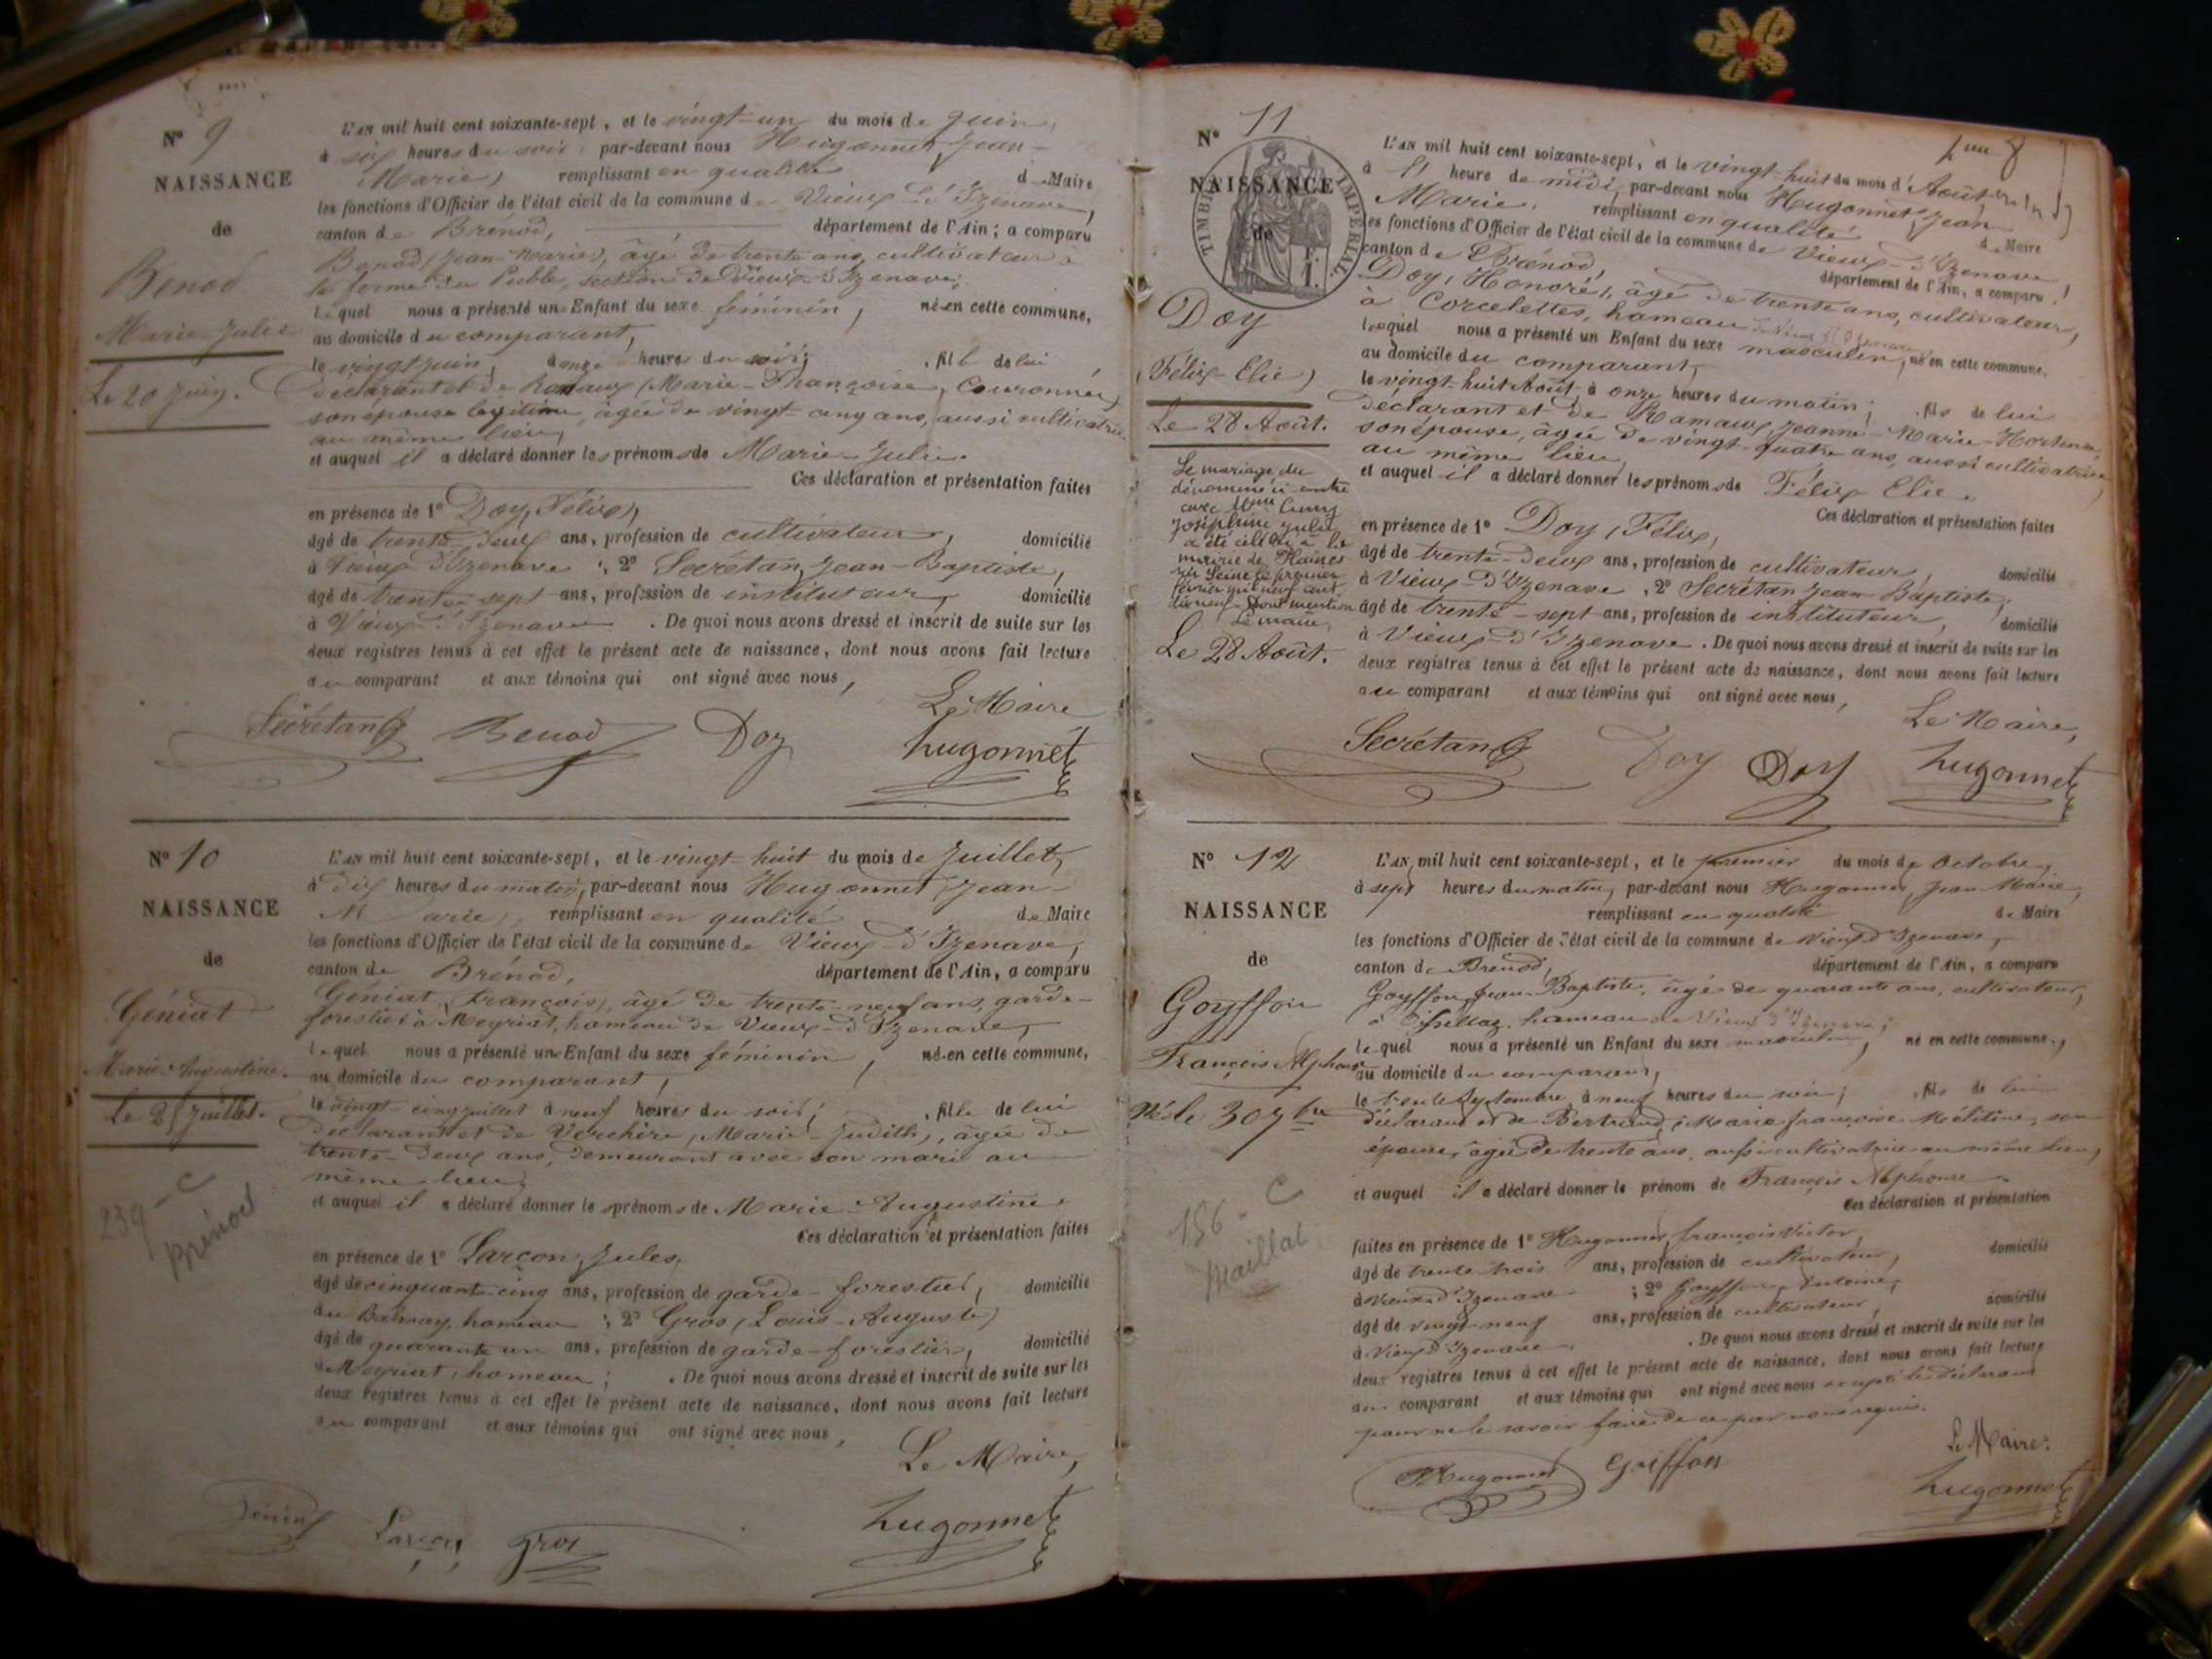 N° 9
NAISSANCE
de
Benod
Marie-Julie
Le 20 Juin.
L'AN mil huit cent soixante-sept, et le vingt-un du mois de Juin,
à six heures du soir, par-devant nous Hugonnet, Jean-
Marie, remplissant en qualité de Maire
les fonctions d'Officier de l'état civil de la commune de Vieux-d'Izenave,
canton de Brénod, département de l'Ain ; a comparu
Benod (Jean-Marie), âgé de trente ans, cultivateur à
la ferme du Puble, section de Vieux-d'Izenave;
lequel nous a présenté une Enfant du sexe féminin, née en cette commune,
au domicile du comparant,
le vingt juin, à onze heures du soir; fille de lui
déclarant et de (Marie-Françoise, Couronnée)
son épouse légitime, âgée de vingt-cinq ans, aussi cultivatrice
au même lieu,
et auquel il a déclaré donner les prénoms de Marie-Julie.
Ces déclaration et présentation faites
en présence de 1° Doy, Félix,
âgé de trente-deux ans, profession de cultivateur, domicilié
à Vieux-d'Izenave ; 2° Secrétan, Jean-Baptiste,
âgé de trente-sept ans, profession de instituteur, domicilié
à Vieux-d'Izenave . De quoi nous avons dressé et inscrit de suite sur les
deux registres tenus à cet effet le présent acte de naissance, dont nous avons fait lecture
au comparant et aux témoins qui ont signé avec nous,
Le Maire
Secrétan Benod Doy hugonnet
N° 10
NAISSANCE
de
Géniat
Marie-Augustine.
Le 25 Juillet.
239 - C
Brénod
L'AN mil huit cent soixante-sept, et le vingt-huit du mois de Juillet,
à dix heures du matin, par-devant nous Hugonnet, Jean-
Marie, remplissant en qualité de Maire
les fonctions d'Officier de l'état civil de la commune de Vieux-d'Izenave,
canton de Brénod, département de l'Ain, a comparu
Géniat, (François), âgé de trente-neuf ans, garde-
forestier à Meyriat, hameau de Vieux-d'Izenave,
lequel nous a présenté une Enfant du sexe féminin, née en cette commune,
au domicile du comparant,
le vingt-cinq juillet à neuf heures du soir; fille de lui
déclarant et de Verchère, Marie-Judith, âgée de
trente-deux ans, demeurant avec son mari au
même lieu;
et auquel il a déclaré donner les prénoms de Marie-Augustine.
Ces déclaration et présentation faites
en présence de 1° Larçon, Jules,
âgé de cinquante-cinq ans, profession de garde-forestier, domicilié
au Balmay, hameau ; 2° Gros (Louis-Auguste)
âgé de quarante-un ans, profession de garde-forestier, domicilié
à Meyriat, hameau ; . De quoi nous avons dressé et inscrit de suite sur les
deux registres tenus à cet effet le présent acte de naissance, dont nous avons fait lecture
au comparant et aux témoins qui ont signé avec nous,
Le Maire,
Larçon Gros hugonnet
N° 11
TIMBRE IMPERIAL
NAISSANCE
de
Doy
(Félix-Elie)
Le 28 Août.
Le mariage du
dénommé ci-contre
avec
Joséphine Julie
a été célébré à la
mairie de
sur Seine le premier
février mil neuf cent
Pour mention
Le maire,
Le 28 Août.
L'AN mil huit cent soixante-sept, et le vingt-huit du mois d'Août,
à heure de midi, par-devant nous Hugonnet Jean
Marie, remplissant en qualité de Maire
les fonctions d'Officier de l'état civil de la commune de Vieux-d'Izenave,
canton de Brénod, département de l'Ain, a comparu
Doy, Honoré, âgé de trente ans, cultivateur,
à Corcelettes, hameau de Vieux d'Izenave
lequel nous a présenté un Enfant du sexe masculin, né en cette commune.
au domicile du comparant,
le vingt-huit Août, à onze heures du matin; fils de lui
déclarant et de Ramaux, Jeanne-Marie-Hortense,
son épouse, âgée de vingt-quatre ans, aussi cultivatrice,
au même lieu,
et auquel il a déclaré donner les prénoms de Félix Elie.
Ces déclaration et présentation faites
en présence de 1° Doy, Félix,
âgé de trente-deux ans, profession de cultivateur, domicilié
à Vieux-d'Izenave , 2° Secrétan Jean-Baptiste,
âgé de trente-sept ans, profession de instituteur, domicilié
à Vieux-d'Izenave . De quoi nous avons dressé et inscrit de suite sur les
deux registres tenus à cet effet le présent acte de naissance, dont nous avons fait lecture
au comparant et aux témoins qui ont signé avec nous,
Le Maire,
Secrétan Doy Doy hugonnet
N° 12
NAISSANCE
de
Goyffon
François Alphonse
Né le 30 7bre
156 - C
Maillat
L'AN mil huit cent soixante-sept, et le premier du mois de Octobre,
à sept heures du matin, par-devant nous Hugonnet, Jean Marie,
remplissant en qualité de Maire
les fonctions d'Officier de l'état civil de la commune de Vieux d'Izenave,
canton de Brénod, département de l'Ain, a comparu
Goyffon, Jean-Baptiste, âgé de quarante ans, cultivateur,
à hameau de Vieux d'Izenave;
lequel nous a présenté un Enfant du sexe masculin, né en cette commune,
au domicile du comparant,
le trente Septembre à neuf heures du soir; fils de lui
déclarant et de Bertrand, Marie françoise Mélitine, son
épouse, âgée de trente ans, aussi cultivatrice au même lieu,
et auquel il a déclaré donner le prénom de François Alphonse
Ces déclaration et présentation
faites en présence de 1° Hugonnet, françois Victor,
âgé de trente trois ans, profession de cultivateur, domicilié
à Vieux d'Izenave ; 2° Goyffon, Antoine,
âgé de vingt-neuf ans, profession de cultivateur, domicilié
à Vieux d'Izenave . De quoi nous avons dressé et inscrit de suite sur les
deux registres tenus à cet effet le présent acte de naissance, dont nous avons fait lecture
au comparant et aux témoins qui ont signé avec nous excepté le déclarant
pour ne le savoir faire de ce par nous requis.
Le Maire:
Hugonnet Goiffon hugonnet